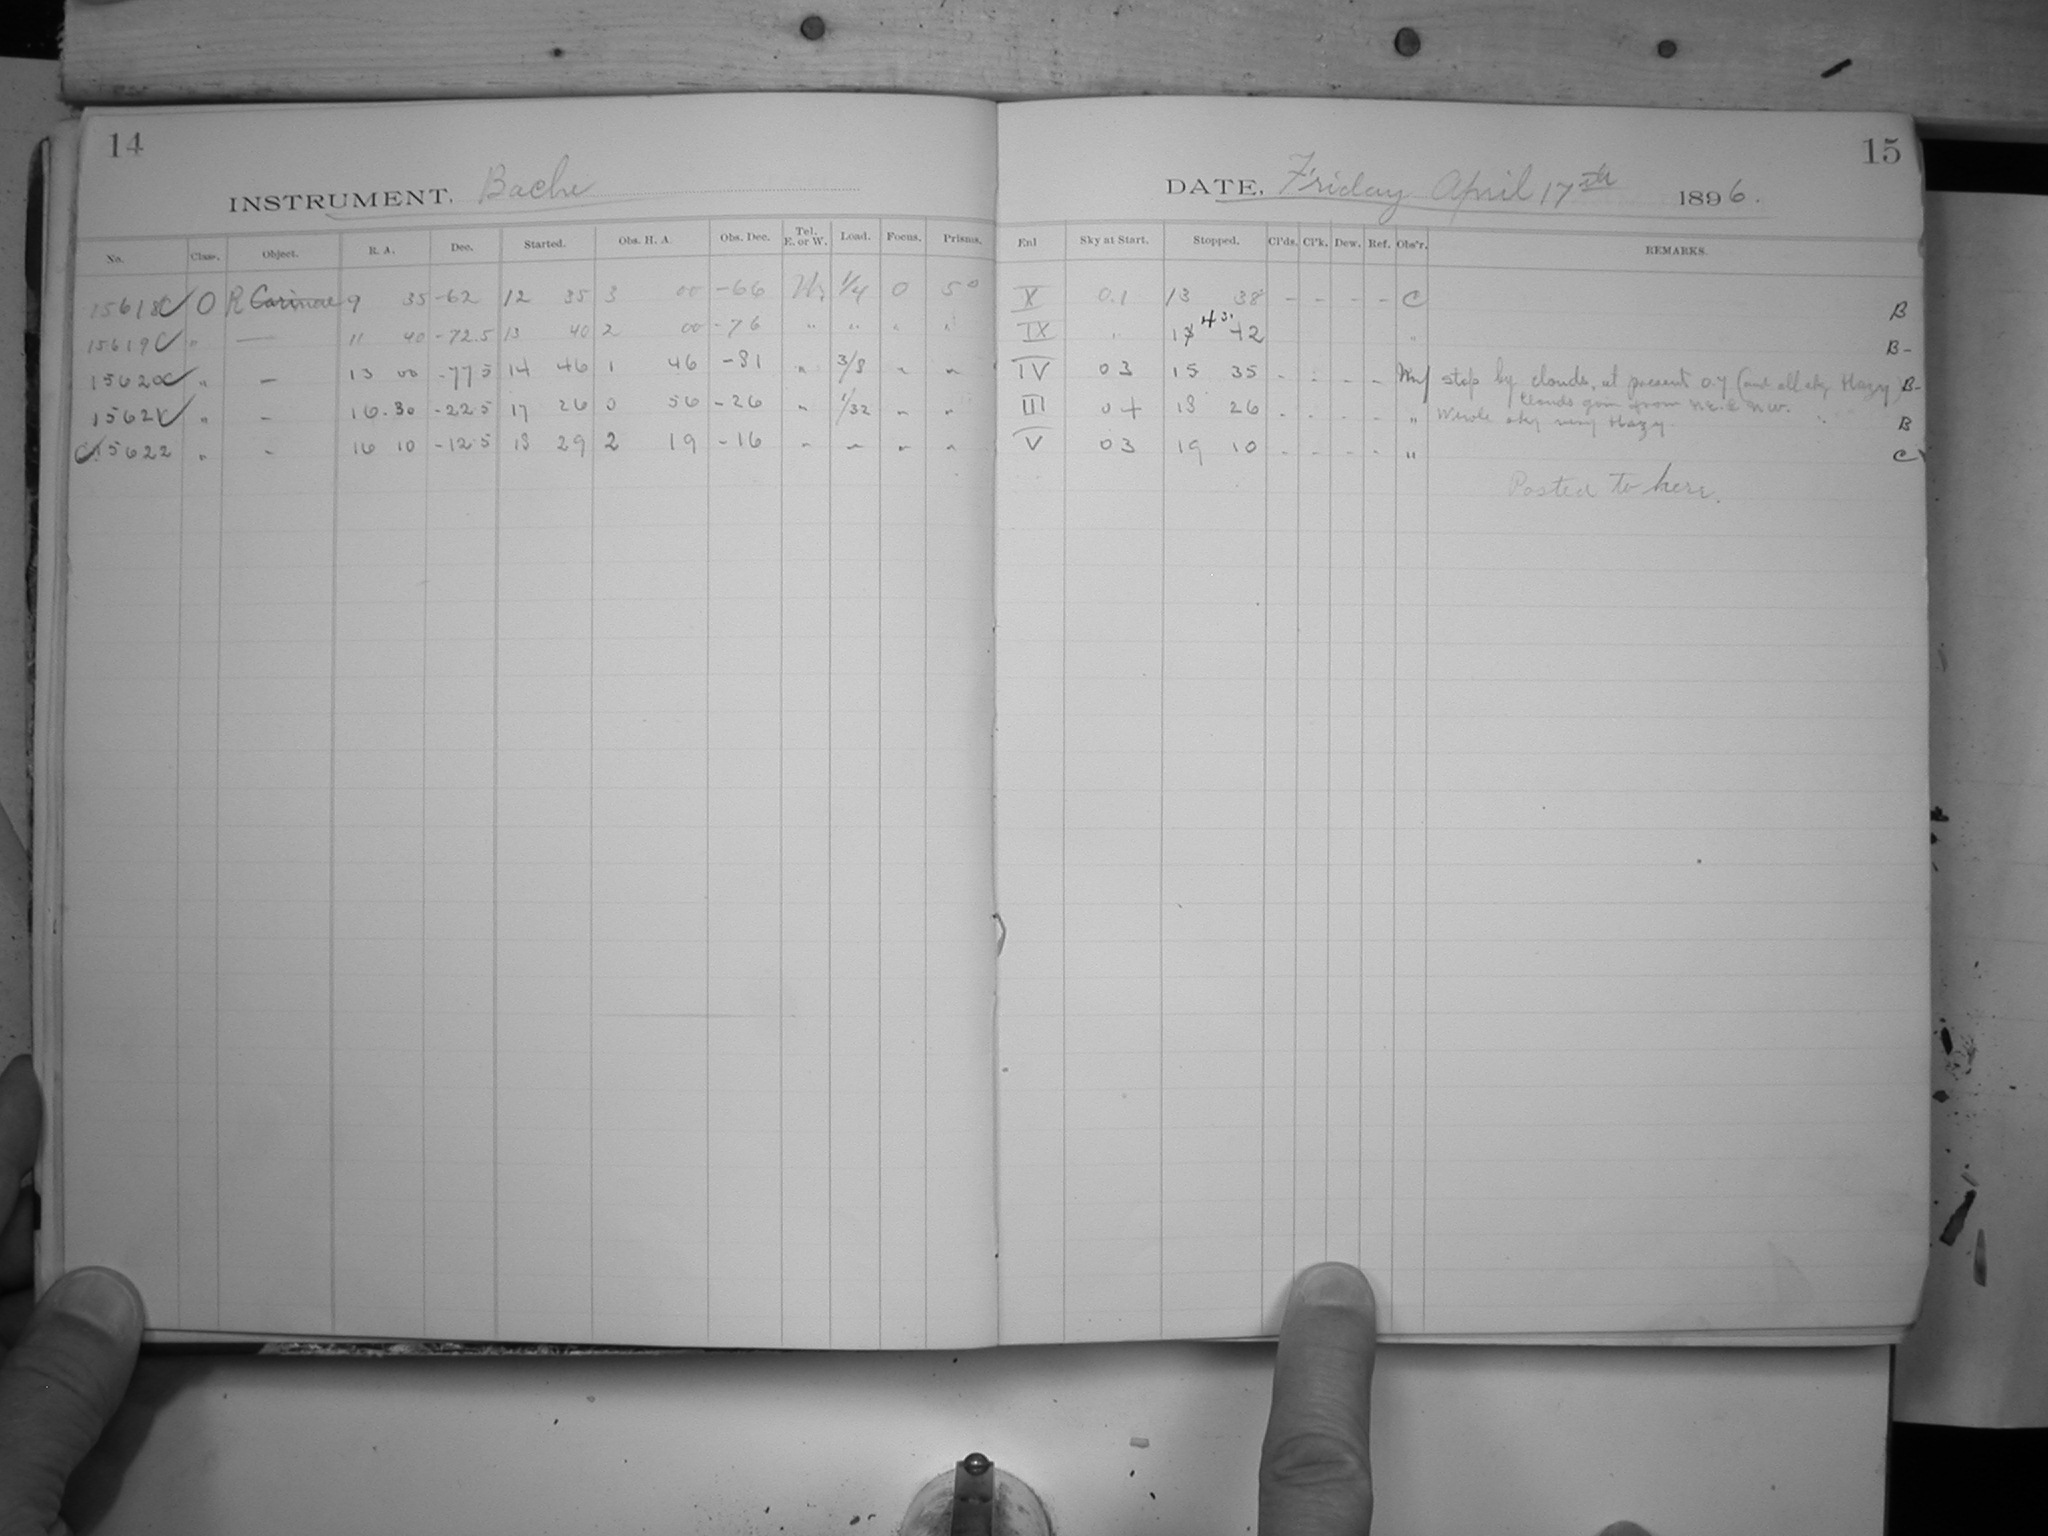 14
INSTRUMENT. Bache
No. Class. Object. R. A. Dec. Started. Obs. H. A. Obs. Dec. Tel. E. or W. Load. Focus. Prisms.
15618 C O R Carinae 9 35 -62 12 35 3 00 -66 W. 1/4 0 5°
15619 C " — 11 40 -72.5 13 40 2 00 -76 " " " "
15620 C " — 13 00 -77 5 14 46 1 46 -81 " 3/8 " "
15621 C " - 16.30 -22 5 17 26 0 56 -26 " 1/32 " "
C 15622 " - 16 10 -12 5 18 29 2 19 -16 " " " "
15
DATE, Friday April 17th 1896.
Enl Sky at Start. Stopped. Cl'ds. Cl'k. Dew. Ref. Obs'r. REMARKS.
X 0.1 13 38 - - - - C B
IX " 14 43 42 " B-
IV 0 3 15 35 - - - - stop by clouds, at present 0.7 (and all sky Hazy) B-
Clouds from N.E. & N.W.
III 0 4 18 26 - - - - " Whole sky very Hazy. B
V 0 3 19 10 - - - - " C
Posted to here.